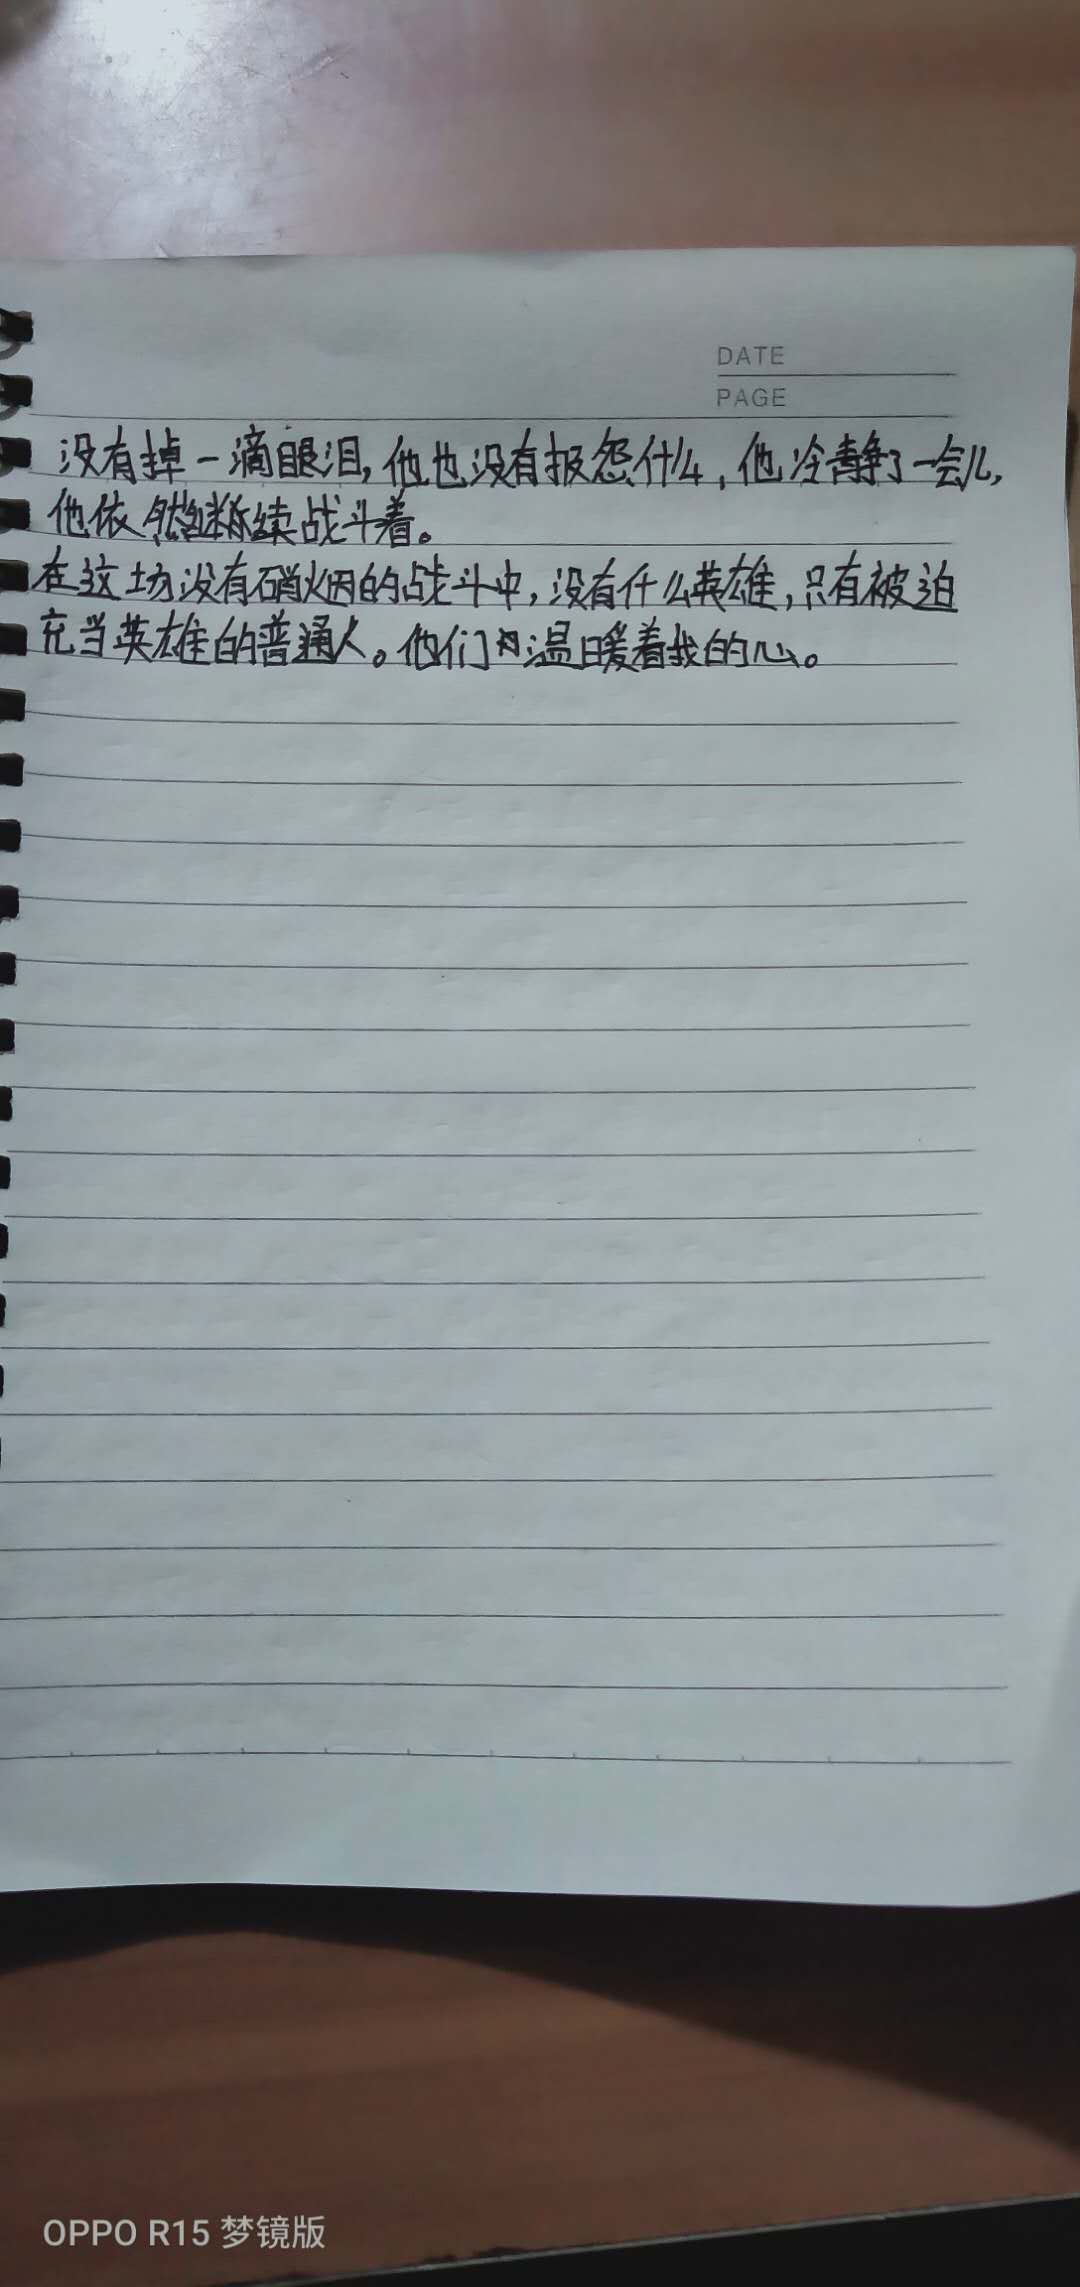 DATE
PAGE
没有掉一滴眼泪,他也没有报怨什么,他冷静了一会儿,
他依然继续战斗着。
在这场没有硝烟的战斗中,没有什么英雄,只有被迫
充当英雄的普通人。他们温暖着我的心。
OPPO R15 梦镜版